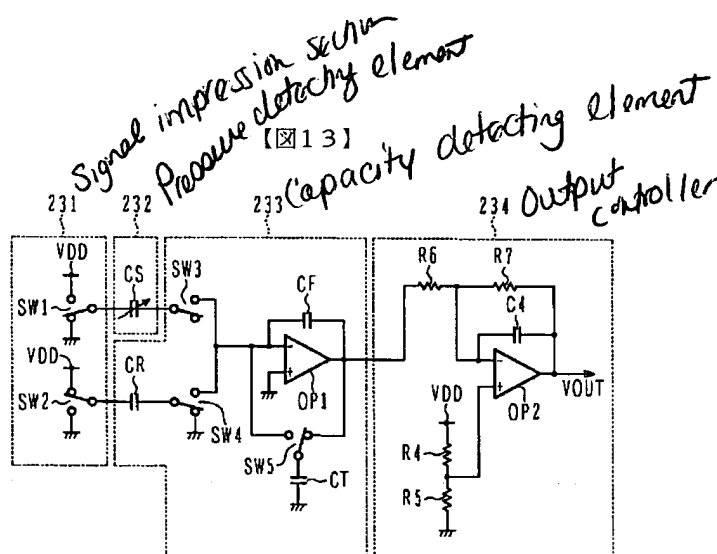 Signal impression section
Pressure detectng element
【図13】
Capacity detecting element
Output
controller
231
232
233
234
VDD
CS
SW1
SW3
CF
R6
R7
C4
VDD
CR
SW2
SW4
OP1
SW5
CT
VDD
OP2
VOUT
R4
R5